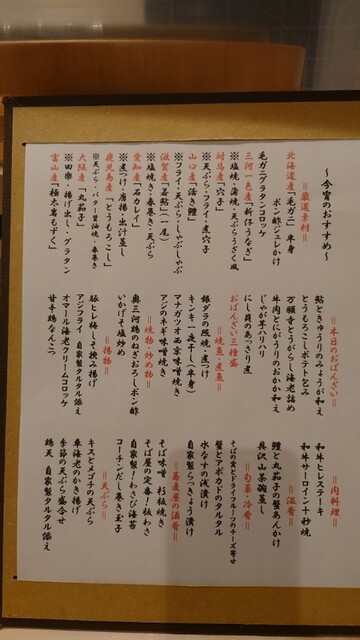 ～今宵のおすすめ～
＝厳選素材＝
北海道産「毛ガニ」半身
ポン酢ジュレかけ
毛ガニグラタンコロッケ
三河一色産「新仔うなぎ」
※塩焼・蒲焼・天ぷらうざく風
対馬産「穴子」
※天ぷら・フライ・煮穴子
山口産「活き鱧」
※フライ・天ぷら・しゃぶしゃぶ
滋賀産「若鮎」（一尾）
※塩焼き・春巻き・天ぷら
愛知産「石カレイ」
※煮つけ・唐揚・出汁蒸し
鹿児島産「とうもろこし」
※天ぷら・バター醤油焼・春巻き
大阪産「丸茄子」
※田楽・揚げ出し・グラタン
富山産「極太岩もずく」
＝本日のおばんざい＝
鮎ときゅうりのみょうが和え
とうもろこしポテト包み
万願寺とうがらし海老詰め
牛肉とにがうりのおかか和え
じゃが芋ハリハリ
にし貝のあっさり煮
おばんざい三種盛
＝焼魚・煮魚＝
銀ダラの照焼・煮つけ
キンキ一夜干し（半身）
マナガツオ西京味噌焼き
アジのネギ味噌焼き
＝焼物・炒め物＝
奥三河鶏のねぎおろしポン酢
いかげそ塩炒め
＝揚物＝
豚ヒレ梅しそ挟み揚げ
アジフライ 自家製タルタル添え
オマール海老クリームコロッケ
甘辛鶏なんこつ
＝肉料理＝
和牛ヒレステーキ
和牛サーロイン十秒焼
＝温肴＝
鱧と丸茄子の蟹あんかけ
具沢山茶碗蒸し
＝旬菜・冷肴＝
そばの実とドライフルーツのチーズ寄せ
蟹とアボカドのタルタル
水なすの浅漬け
自家製らっきょう漬け
＝蕎麦屋の酒肴＝
そば味噌 杉板焼き
そば屋の定番！板わさ
自家製！わさび海苔
コーチンだし巻き玉子
＝天ぷら＝
キスとメゴチの天ぷら
車海老のかき揚げ
季節の天ぷら盛合せ
鶏天 自家製タルタル添え